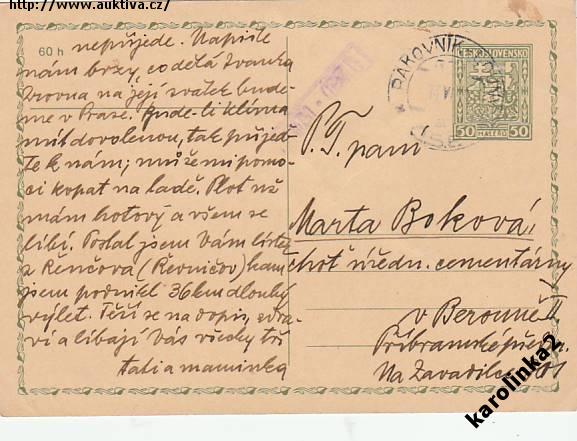 http://www.auktiva.cz/
60 h
nepřijede. Napište
nám brzy, co dělá Ivanka
Zrovna na její svátek bude-
me v Praze. Bude-li Klíma
mít dovolenou, tak přijeď-
te k nám; může mi pomo-
ci kopat na ladě. Plot už
mám hotový a všem se
líbí. Poslal jsem Vám lístek
z Řenčova (Řevničov) kam
jsem podnikl 36 km dlouhý
výlet. Těší se na dopis, zdra-
ví a líbají Vás všecky tři
tati a maminka
RAKOVNÍK
ČESKOSLOVENSKO
50 HALÉŘŮ 50
P. T. paní
Marta Boková,
choť úředn. cementárny
v Berouně II
Příbramské předm.
Na Zavadilce
karolinka2